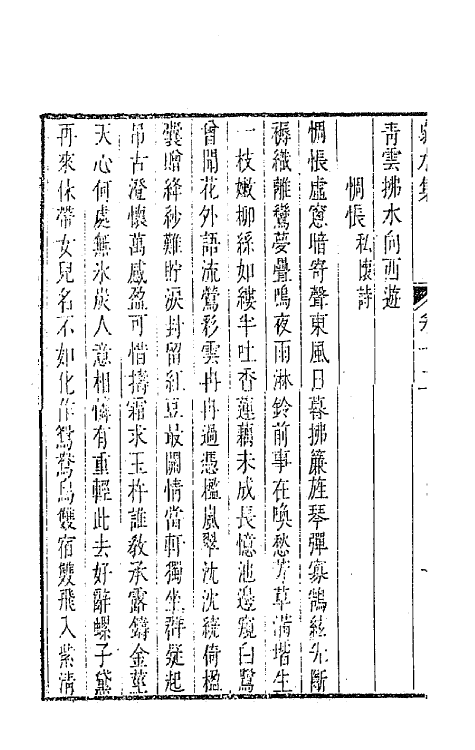 集 卷十二
青雲拂水向西遊
惆悵私懷詩
惆悵虛窻暗寄聲東風日暮拂簾旌琴彈寡鵠絃先斷
褥織離鸞夢疊鳴夜雨淋鈴前事在喚愁芳草滿堦生
一枝嫩柳綠如縷半吐香蓮藕未成長憶池邊窺白鷺
曾聞花外語流鶯彩雲冉冉過慿檻嵐翠沈沈繞倚楹
囊贈絳紗難貯淚封留紅豆最關情當軒獨坐群疑起
吊古澄懷萬感盈可惜擣霜求玉杵誰教承露鑄金莖
天心何處無氷炭人意相憐有重輕此去好辭螺子黛
再來休帶女兒名不如化作鴛鴦鳥雙宿雙飛入紫清